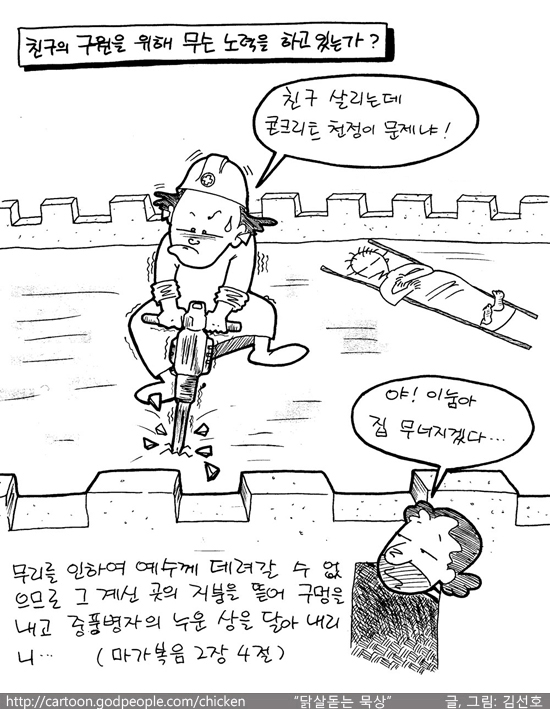 친구의 구원을 위해 무슨 노력을 하고 있는가?
친구 살리는데
콘크리트 천정이 문제냐!
야! 이눔아
집 무너지겠다…
무리를 인하여 예수께 데려갈 수 없
으므로 그 계신 곳의 지붕을 뜯어 구멍을
내고 중풍병자의 누운 상을 달아 내리
니… (마가복음 2장 4절)
http://cartoon.godpeople.com/chicken "닭살돋는 묵상" 글, 그림: 김선호